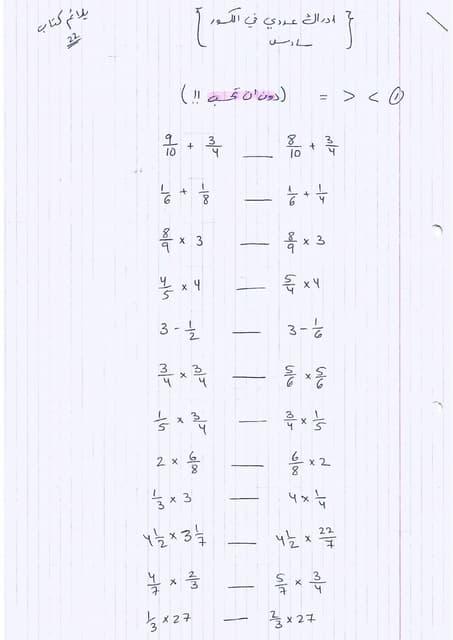 { ادراك عددي في الكسور }
سادس
يلائم كتاب
22
① < > = (دون ان تحسب !!)
9/10 + 3/4 ___ 8/10 + 3/4
1/6 + 1/8 ___ 1/6 + 1/4
8/9 × 3 ___ 8/9 × 3
4/5 × 4 ___ 5/4 × 4
3 - 1/2 ___ 3 - 1/6
3/4 × 3/4 ___ 5/6 × 5/6
1/5 × 3/4 ___ 3/4 × 1/5
2 × 6/8 ___ 6/8 × 2
1/3 × 3 ___ 4 × 1/4
4 1/2 × 3 1/7 ___ 4 1/2 × 22/7
4/7 × 2/3 ___ 5/7 × 3/4
1/3 × 27 ___ 2/3 × 27